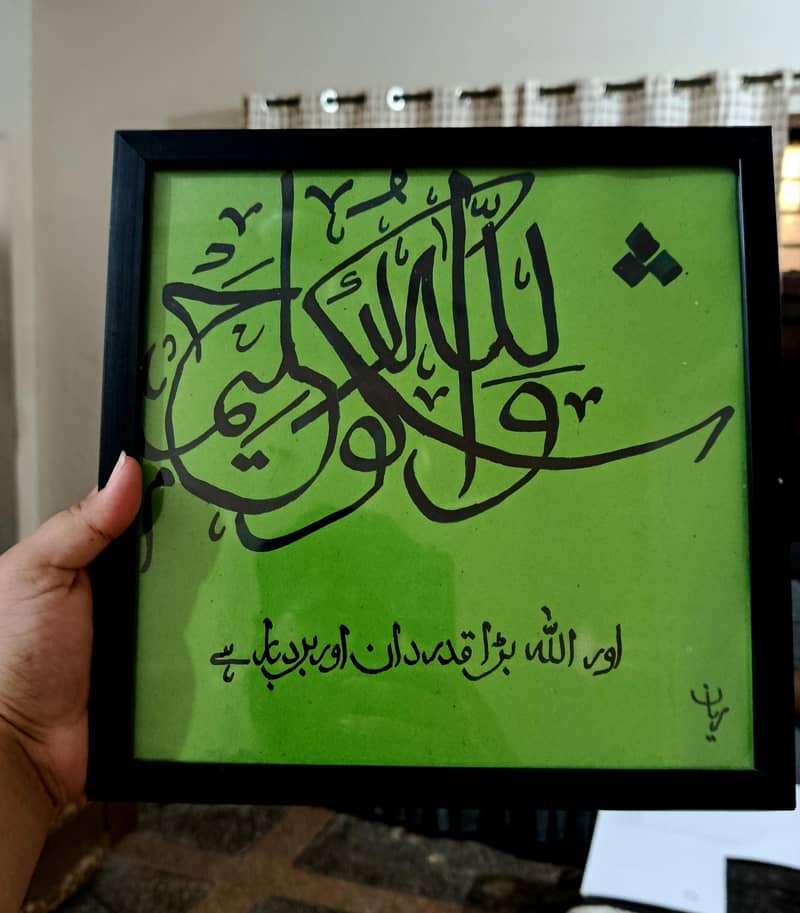 والله شكور حليم
اور اللہ بڑا قدردان اور بردبار ہے
ریان